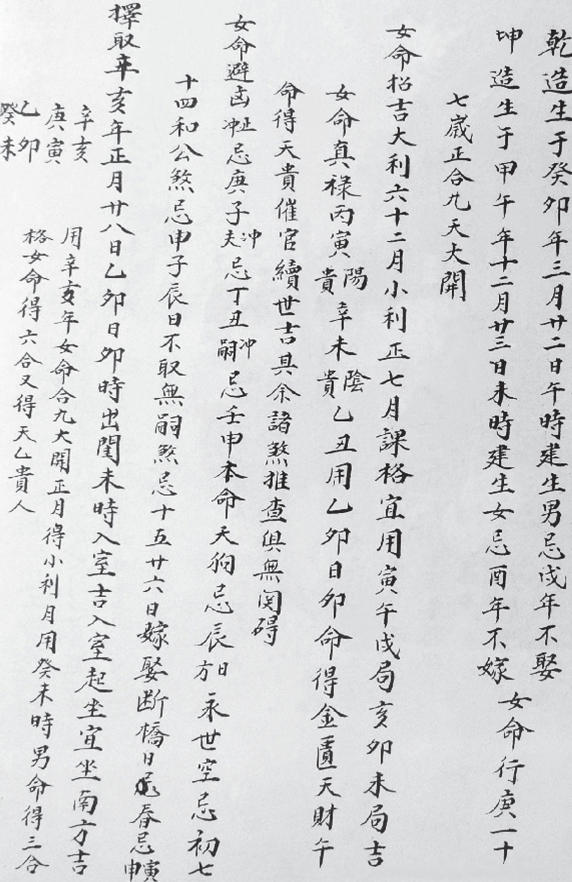 乾造生于癸卯年三月廿二日午時建生男忌戌年不娶
坤造生于甲午年十二月廿三日未時建生女忌酉年不嫁女命行庚一十
七歲正合九天大開
女命招吉大利六十二月小利正七月課格宜用寅午戌局亥卯未局吉
女命真禄丙寅陽貴辛未陰貴乙丑用乙卯日卯命得金匱天財午
命得天貴催官續世吉具余諸煞推查俱無関碍
女命避凶冲址忌庚子冲夫忌丁丑冲嗣忌壬申本命天狗忌辰日方永世空忌初七
十四和公煞忌申子辰日不取無嗣煞忌十五廿六日嫁娶断橋日忌春忌寅申
擇取辛亥年正月廿八日乙卯日卯時出閨未時入室吉入室起坐宜坐南方吉
辛亥
庚寅
乙卯
癸未
用辛亥年女命合九大開正月得小利月用癸未時男命得三合
格女命得六合又得天乙貴人